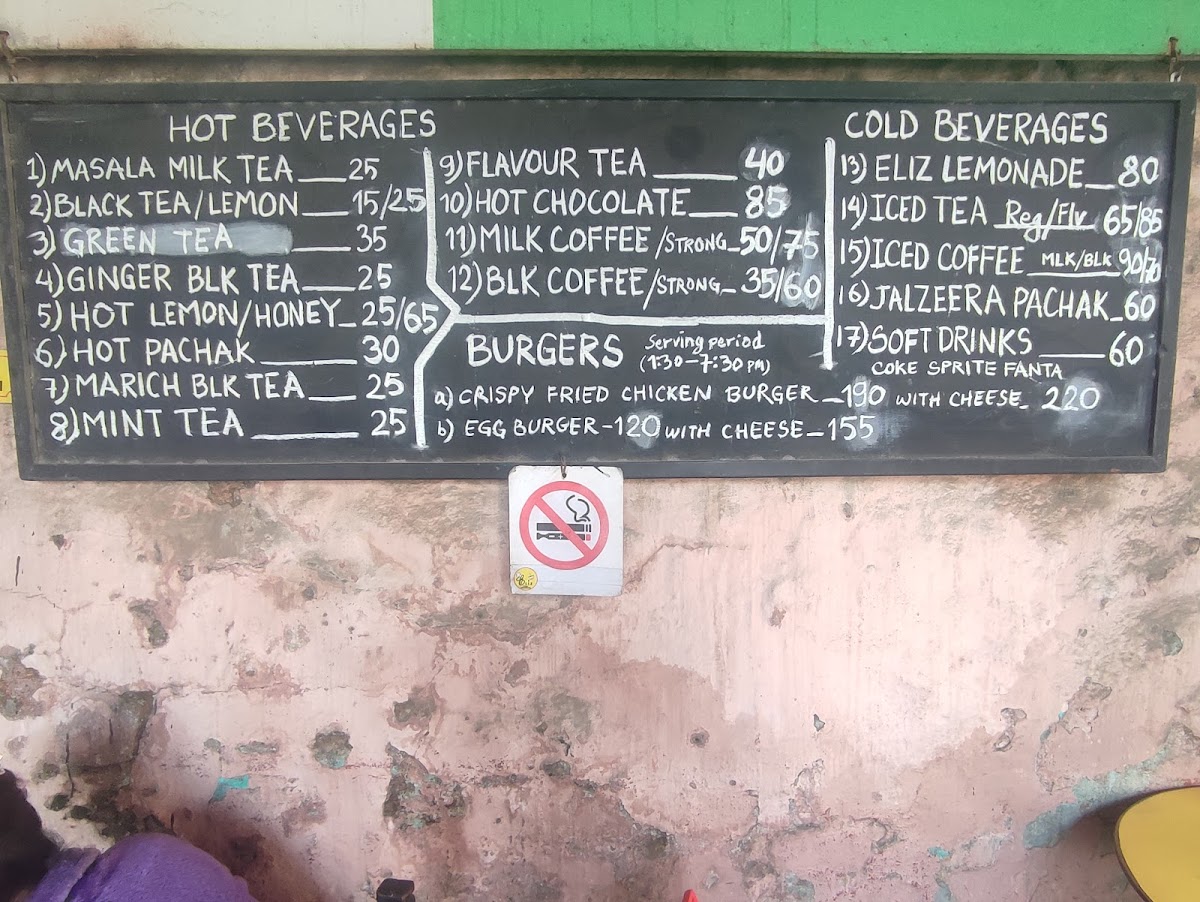 HOT BEVERAGES
1) MASALA MILK TEA ___ 25
2) BLACK TEA/LEMON ___ 15/25
3) GREEN TEA ___ 35
4) GINGER BLK TEA ___ 25
5) HOT LEMON/HONEY_ 25/65
6) HOT PACHAK ___ 30
7) MARICH BLK TEA ___ 25
8) MINT TEA ___ 25
9) FLAVOUR TEA ___ 40
10) HOT CHOCOLATE ___ 85
11) MILK COFFEE/STRONG_50/75
12) BLK COFFEE/STRONG_ 35/60
BURGERS Serving period
(1:30-7:30 PM)
a) CRISPY FRIED CHICKEN BURGER _190 WITH CHEESE_ 220
b) EGG BURGER-120 WITH CHEESE_155
COLD BEVERAGES
13) ELIZ LEMONADE_ 80
14) ICED TEA Reg/Flv 65/85
15) ICED COFFEE MLK/BLK 90/70
16) JALZEERA PACHAK_60
17) SOFT DRINKS ___ 60
COKE SPRITE FANTA